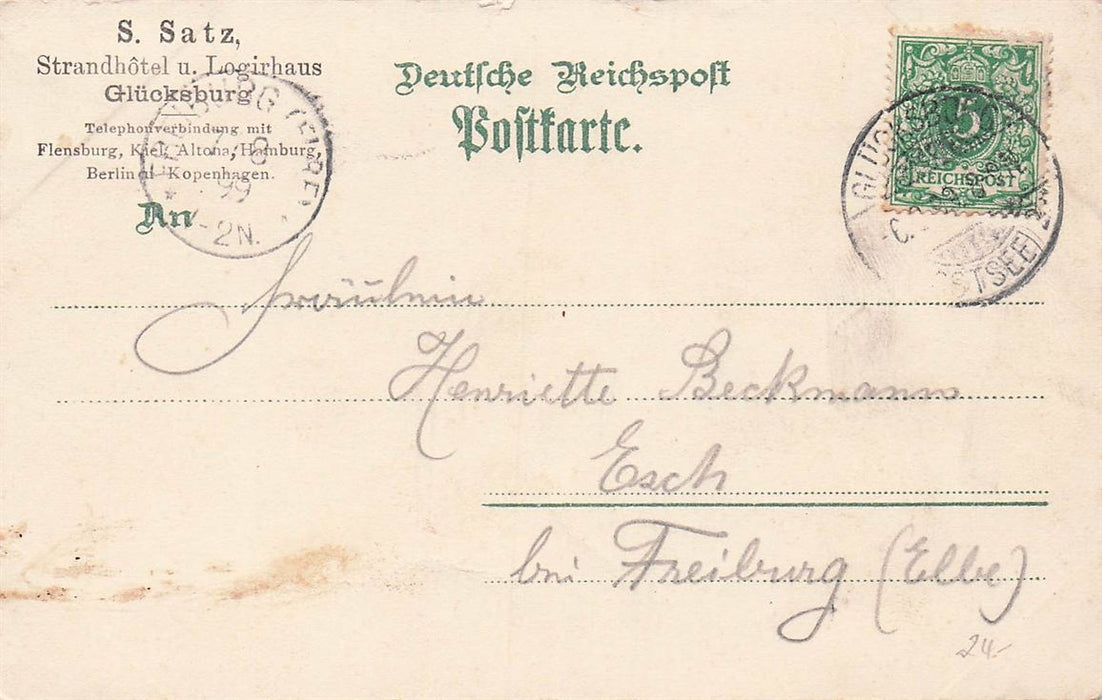 S. Satz,
Strandhôtel u. Logirhaus
Glücksburg
Telephonverbindung mit
Flensburg, Kiel, Altona, Hamburg,
Berlin u. Kopenhagen.
Deutsche Reichspost
Postkarte.
5
REICHSPOST
GLÜCKSBURG
OSTSEE
FREIBURG (ELBE)
7 8
99
1-2N.
An
Fräulein
Henriette Beckmann
Esch
bei Freiburg (Elbe)
24-